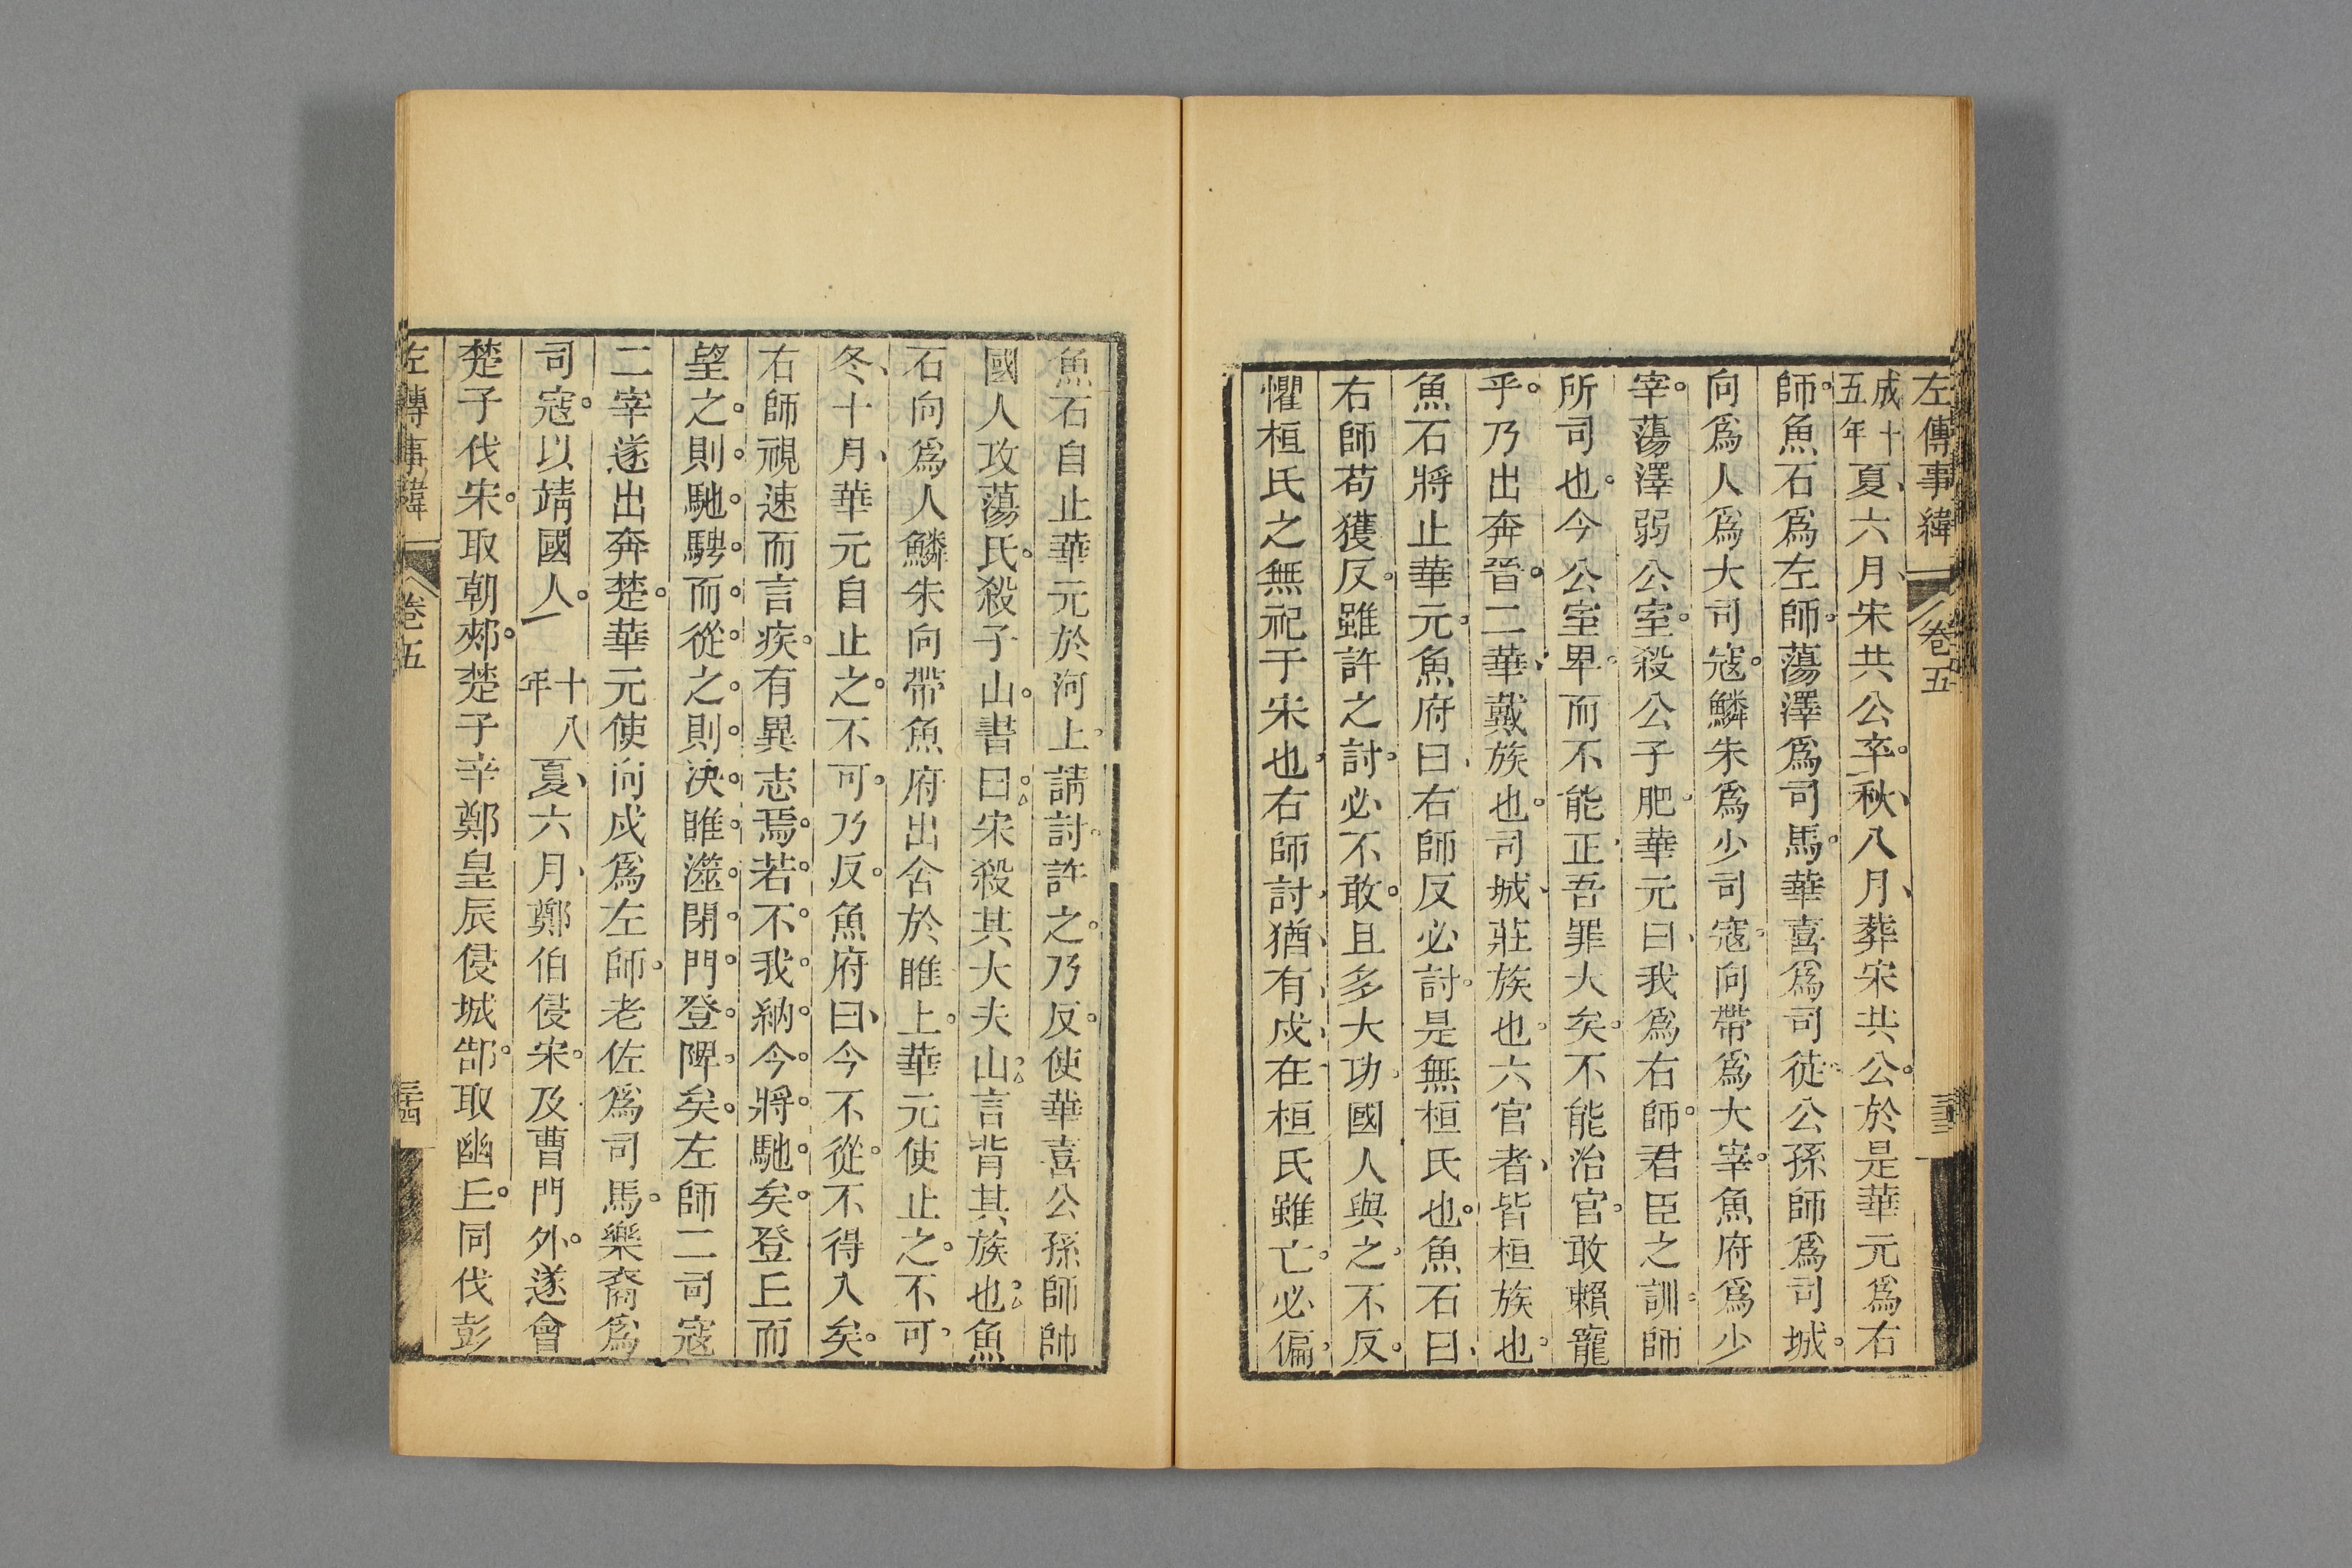 左傳事緯 卷五 三十三
成十五年夏六月宋共公卒秋八月葬宋共公於是華元爲右
師魚石爲左師蕩澤爲司馬華喜爲司徒公孫師爲司城
向爲人爲大司寇鱗朱爲少司寇向帶爲大宰魚府爲少
宰蕩澤弱公室殺公子肥華元曰我爲右師君臣之訓師
所司也今公室卑而不能正吾罪大矣不能治官敢賴寵
乎乃出奔晉二華戴族也司城莊族也六官者皆桓族也
魚石將止華元魚府曰右師反必討是無桓氏也魚石曰
右師苟獲反雖許之討必不敢且多大功國人與之不反
懼桓氏之無祀于宋也右師討猶有戍在桓氏雖亡必偏
魚石自止華元於河上請討許之乃反使華喜公孫師帥
國人攻蕩氏殺子山書曰宋殺其大夫山言背其族也魚
石向爲人鱗朱向帶魚府出舍於睢上華元使止之不可
冬十月華元自止之不可乃反魚府曰今不從不得入矣
右師視速而言疾有異志焉若不我納今將馳矣登丘而
望之則馳騁而從之則決睢澨閉門登陴矣左師二司寇
二宰遂出奔楚華元使向戍爲左師老佐爲司馬樂裔爲
司寇以靖國人 十八年夏六月鄭伯侵宋及曹門外遂會
楚子伐宋取朝郟楚子辛鄭皇辰侵城郜取幽丘同伐彭
左傳事緯 卷五 三十四